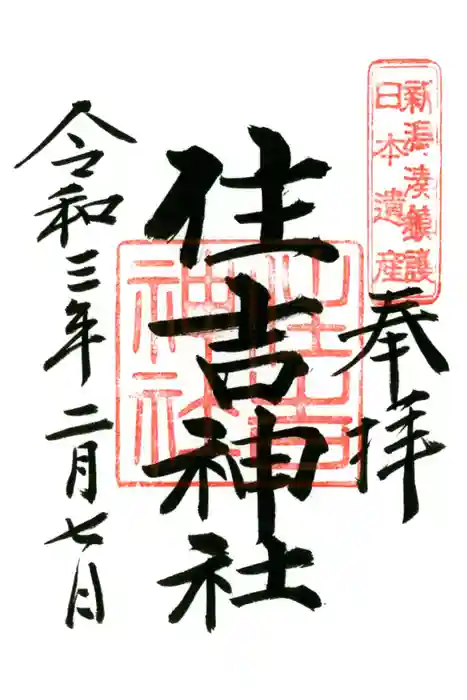 新潟湊鎮護
日本遺産
奉拝
住吉神社
住吉神社
令和三年二月七日